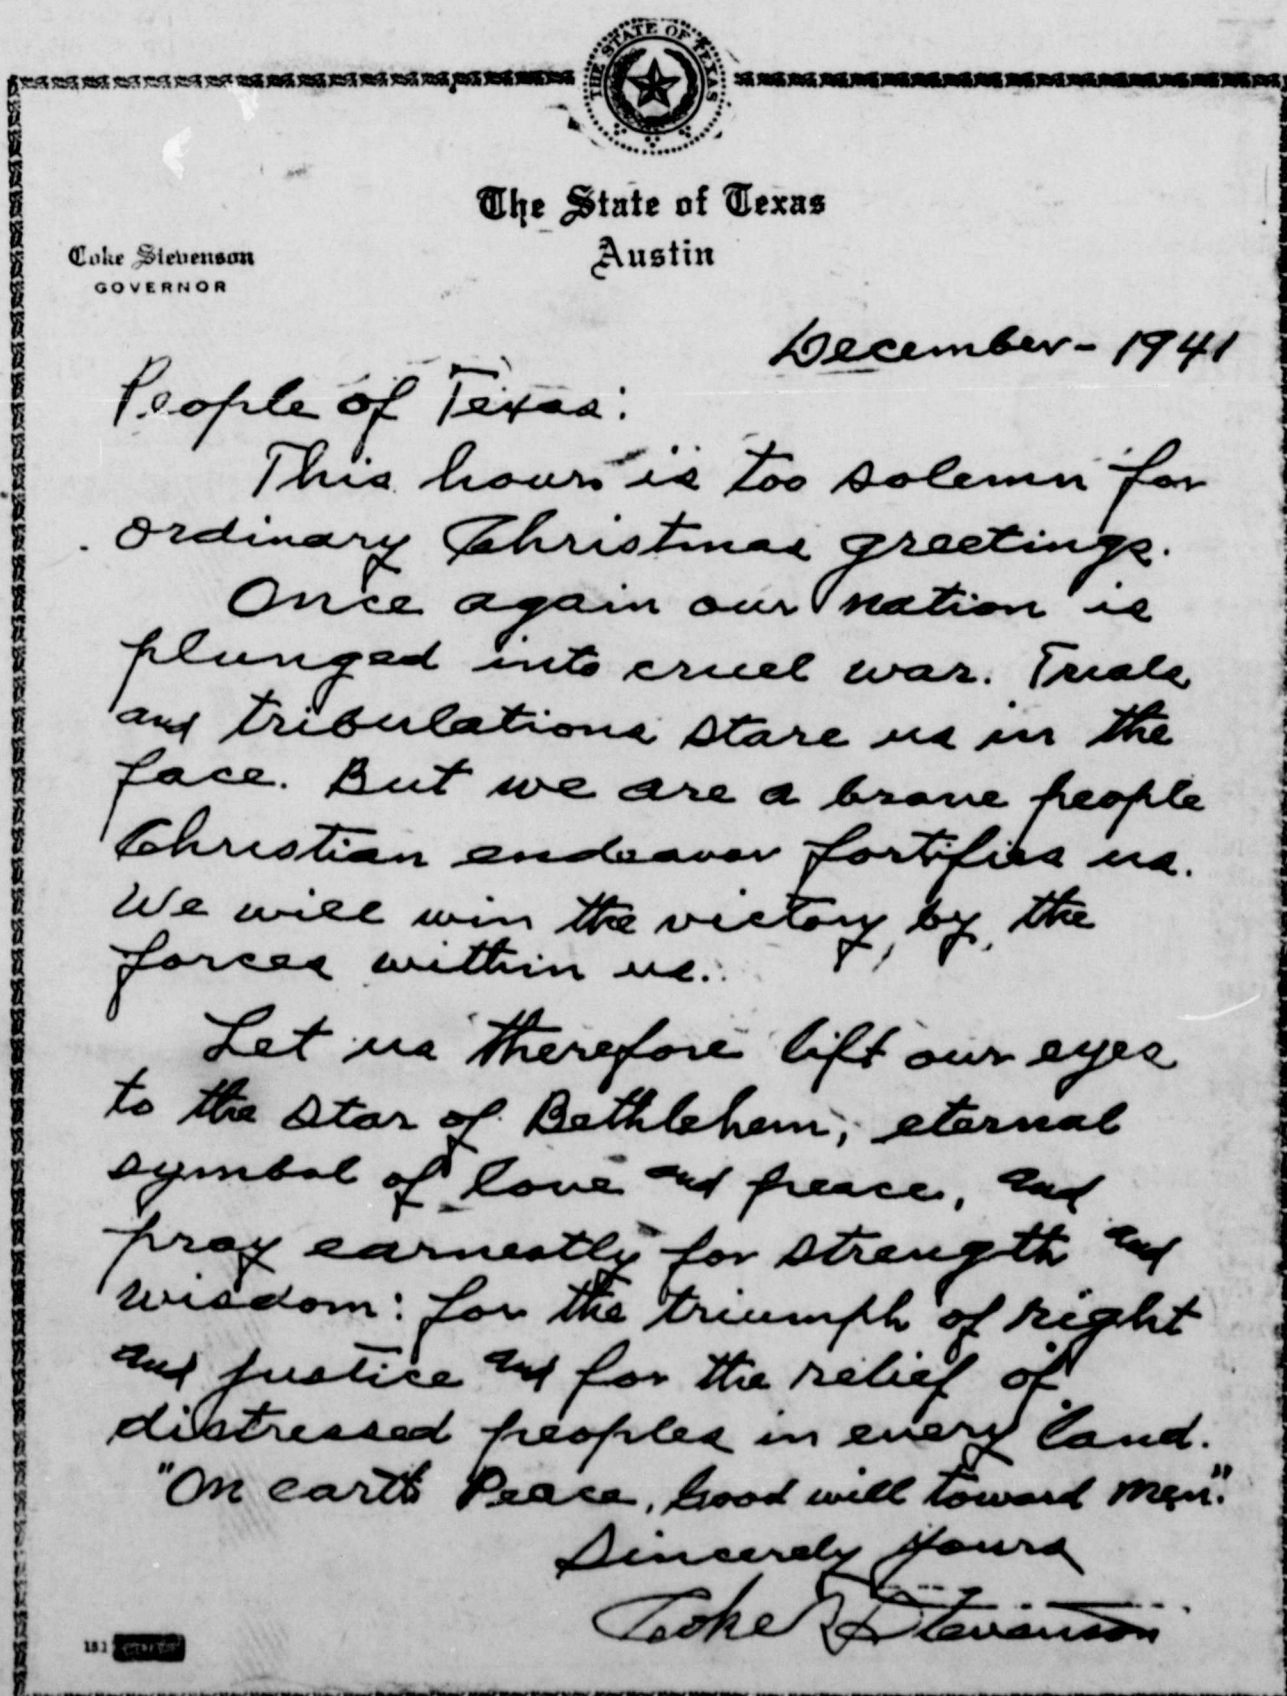 THE STATE OF TEXAS
The State of Texas
Austin
Coke Stevenson
GOVERNOR
December - 1941
People of Texas:
This hour is too solemn for
ordinary Christmas greetings.
Once again our nation is
plunged into cruel war. Trials
and tribulations stare us in the
face. But we are a brave people
Christian endeavor fortifies us.
We will win the victory by the
forces within us.
Let us therefore lift our eyes
to the star of Bethlehem, eternal
symbol of love and peace, and
pray earnestly for strength and
wisdom: for the triumph of right
and justice and for the relief of
distressed peoples in every land.
"On earth Peace, Good will toward Men."
Sincerely yours
Coke R Stevenson
181